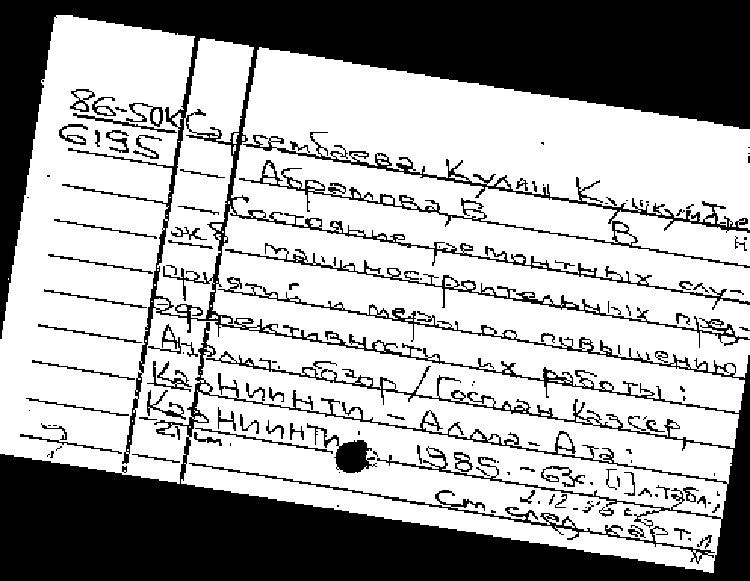 86-50К Сарсембаева, Куляш Кушкумбае
6195 Абрамова, В В Н
Состояние ремонтных слу-
жб машиностроительных пред-
приятий и меры по повышению
эффективности их работы:
Аналит. обзор / Госплан КазССР,
КазНИИНТИ. - Алма-Ата:
КазНИИНТИ, 1985. - 63с., [1] л.табл.;
21 см.
См. след. карт.